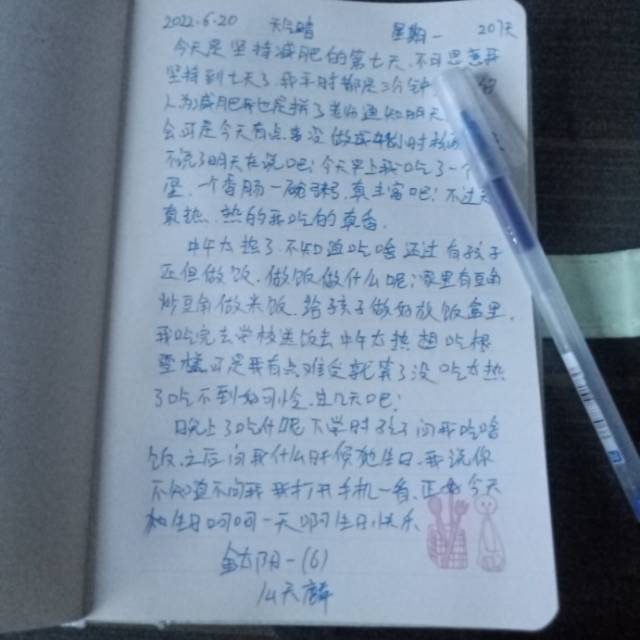 2022.6.20 天气晴 星期一 20天
今天是坚持减肥的第七天、不可思意我
坚持到七天了我平时都是三分钟
人为减肥我也是拼了老师通知明天
会可是今天有点事没做
不说了明天在说吧!今天早上我吃了一个
蛋、一个香肠一碗粥、真丰富吧!不过
真热、热的我吃的真香。
中午太热了不知道吃啥还过有孩子
还但做饭、做饭做什么呢!家里有豆角
炒豆角做米饭、给孩子做好放饭盒里、
我吃完去学校送饭去中午太热想吃根
雪糕可是我有点难受就算了没吃太热
了吃不到如习惯几天吧!
晚上了吃什呢下学时孩子问我吃啥
饭、之后问我什么时候她生日、我说你
不知道不问我我打开手机一看、正
今天
她生日呵呵一天啊生日快乐
(6)